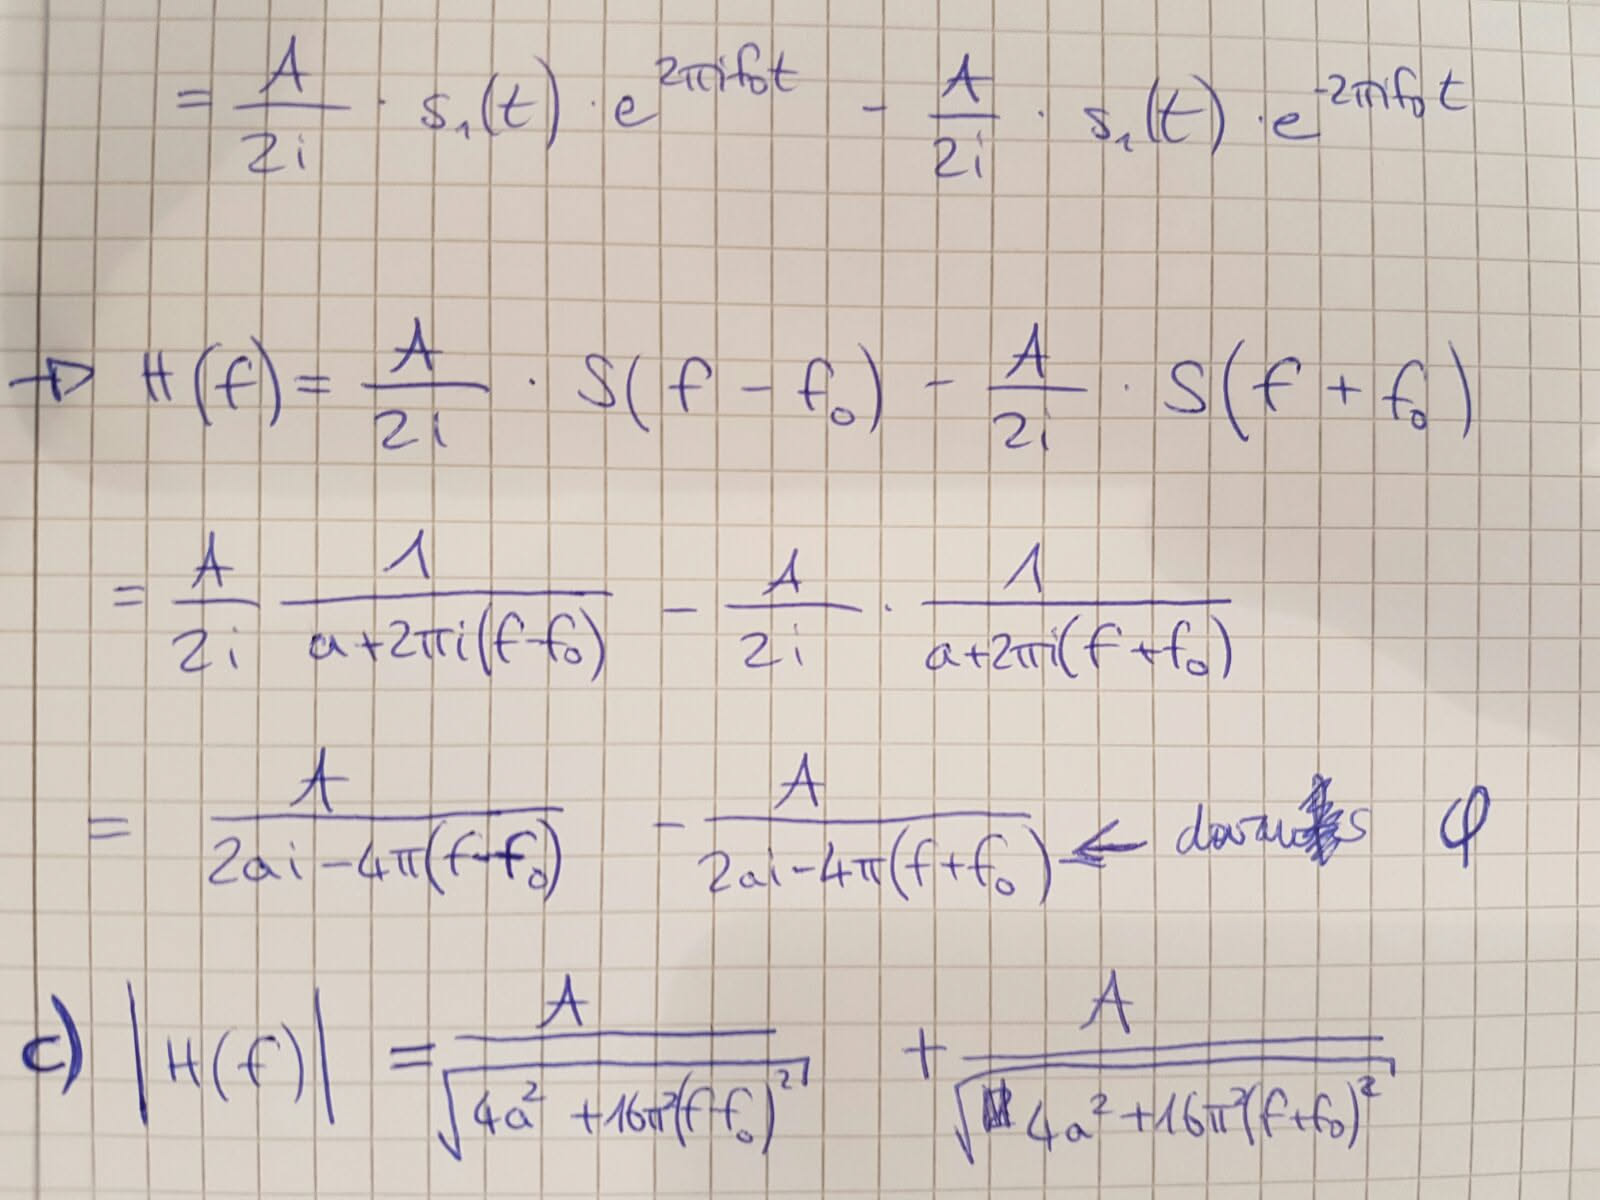 = A/2i · s₁(t) · e^(2πif₀t) - A/2i · s₁(t) · e^(-2πif₀t)
→ H(f) = A/2i · S(f - f₀) - A/2i · S(f + f₀)
= A/2i 1/(a+2πi(f-f₀)) - A/2i · 1/(a+2πi(f+f₀))
= A/(2ai-4π(f-f₀)) - A/(2ai-4π(f+f₀)) ← daraus φ
c) |H(f)| = A/√(4a²+16π²(f-f₀)²) + A/√(4a²+16π²(f+f₀)²)